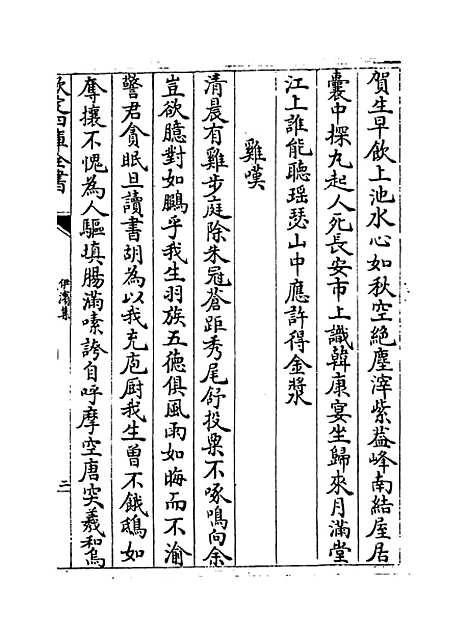 賀生早飲上池水心如秋空絶塵滓紫葢峰南結屋居
囊中探丸起人死長安市上識韓康宴坐歸來月滿堂
江上誰能聽瑶瑟山中應許得金漿
雞嘆
清晨有雞步庭除朱冠蒼距秀尾舒投粟不啄鳴向余
豈欲臆對如鵬乎我生羽族五徳俱風雨如晦而不渝
警君貪眠旦讀書胡為以我充庖厨我生曽不餓鴟如
奪攘不愧為人驅填腸滿嗉誇自呼摩空唐突羲和烏
欽定四庫全書
伊濱集
二